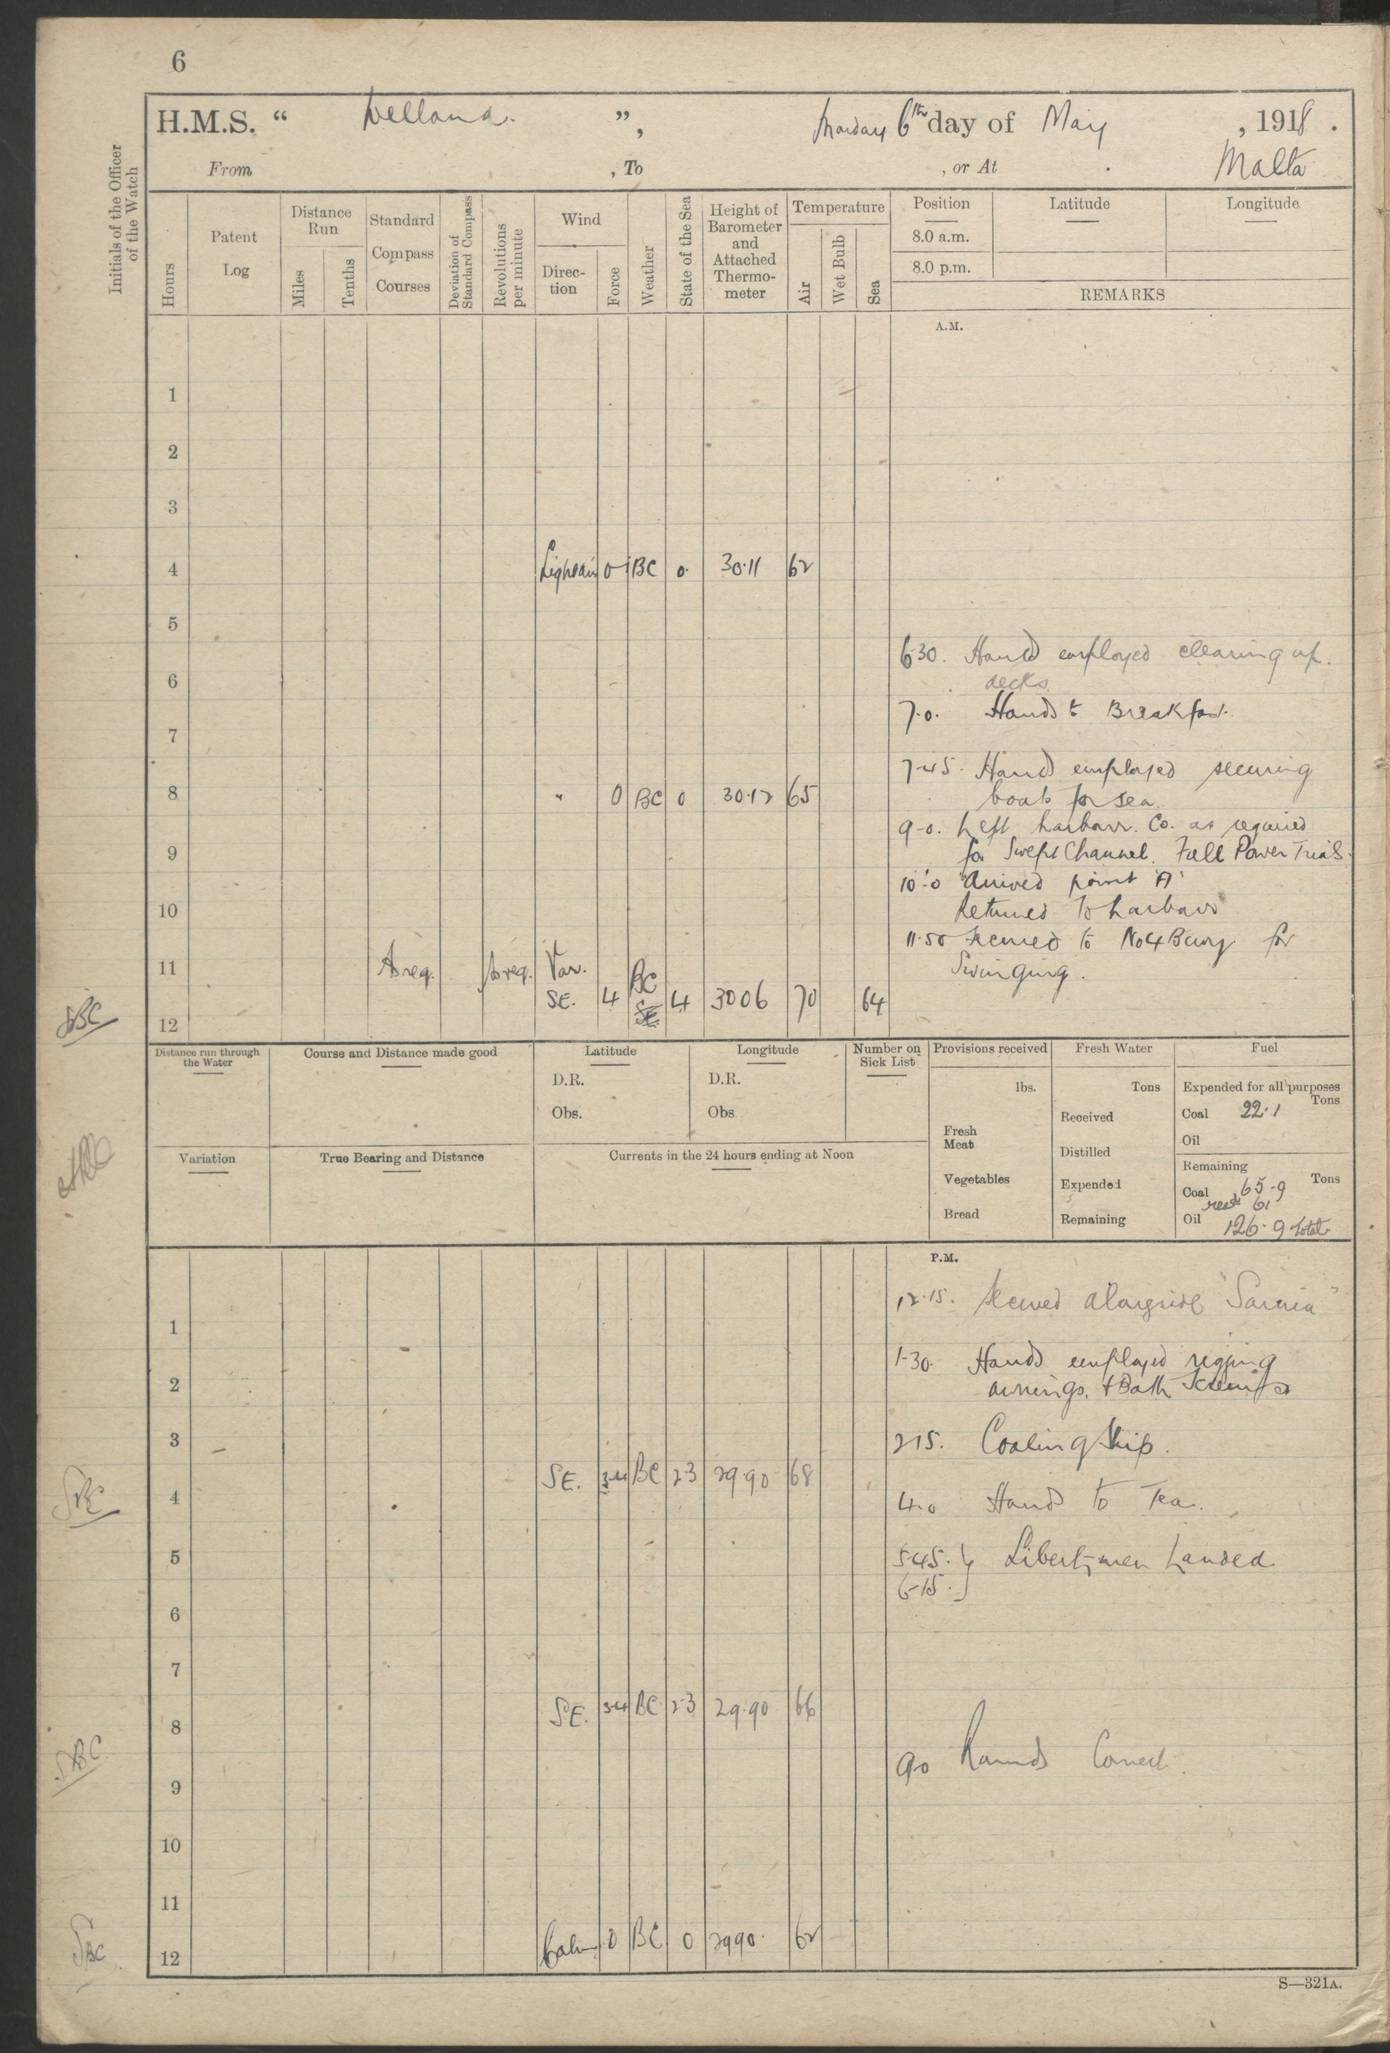 6
H.M.S. “ Welland. ”, Monday 6th day of May , 1918 .
From , To , or At Malta
Initials of the Officer of the Watch
Hours
Patent Log
Distance Run
Miles
Tenths
Standard Compass Courses
Deviation of Standard Compass
Revolutions per minute
Wind
Direc-tion
Force
Weather
State of the Sea
Height of Barometer and Attached Thermo-meter
Temperature
Air
Wet Bulb
Sea
Position Latitude Longitude
8.0 a.m.
8.0 p.m.
REMARKS
A.M.
1
2
3
4 0 BC 0 30.11 62
5
6.30. Hands employed clearing up
6 decks
7.0. Hands to Breakfast
7
7.45. Hands employed securing
8 " 0 BC 0 30.12 65 boats for sea.
9-0. Left harbour. Co. as required
9 for Swept Channel. Full Power Trials.
10.0 Arrived point 'A'
10 Returned to harbour
11.50 Secured to No 4 Buoy for
11 As req. As req. Var. BC Swinging.
SE. 4 SE 4 30 06 70 64
12
Distance run through the Water
Course and Distance made good
Latitude
D.R.
Obs.
Longitude
D.R.
Obs
Number on Sick List
Provisions received
lbs.
Fresh Meat
Vegetables
Bread
Fresh Water
Tons
Received
Distilled
Expended
Remaining
Fuel
Expended for all purposes
Tons
Coal 22.1
Oil
Remaining
Tons
Coal 65.9
recd 61
Oil 126.9 total
Variation
True Bearing and Distance
Currents in the 24 hours ending at Noon
P.M.
12.15. Secured alongside "Sarnia"
1
1-30. Hands employed rigging
2 awnings, + Bath
3 2 15. Coaling Ship.
SE. 3-4 BC 2 3 29.90 68
4 4.0 Hands to Tea.
5 5 45. } Libertymen Landed
6-15. }
6
7
SE. 3 4 BC 2-3 29.90 66
8
9 0 Rounds Correct.
9
10
11
Calm 0 BC 0 29 90. 62
12
S—321A.